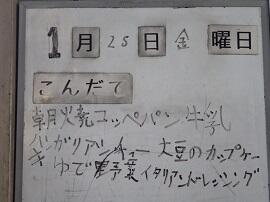 1月25日金曜日
こんだて
朝火焼コッペパン 牛乳
ハンガリアンシチュー 大豆のカップケーキ
ゆで野菜イタリアンドレッシング